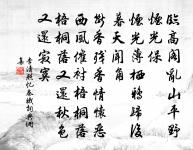 臨高阁亂山平野
煙光薄
煙光薄栖鴉歸後
暮天闻角
断香残香情懷恶
西風催衬梧桐落
梧桐落又還秋色
又還寂寞
李清照忆秦娥詞